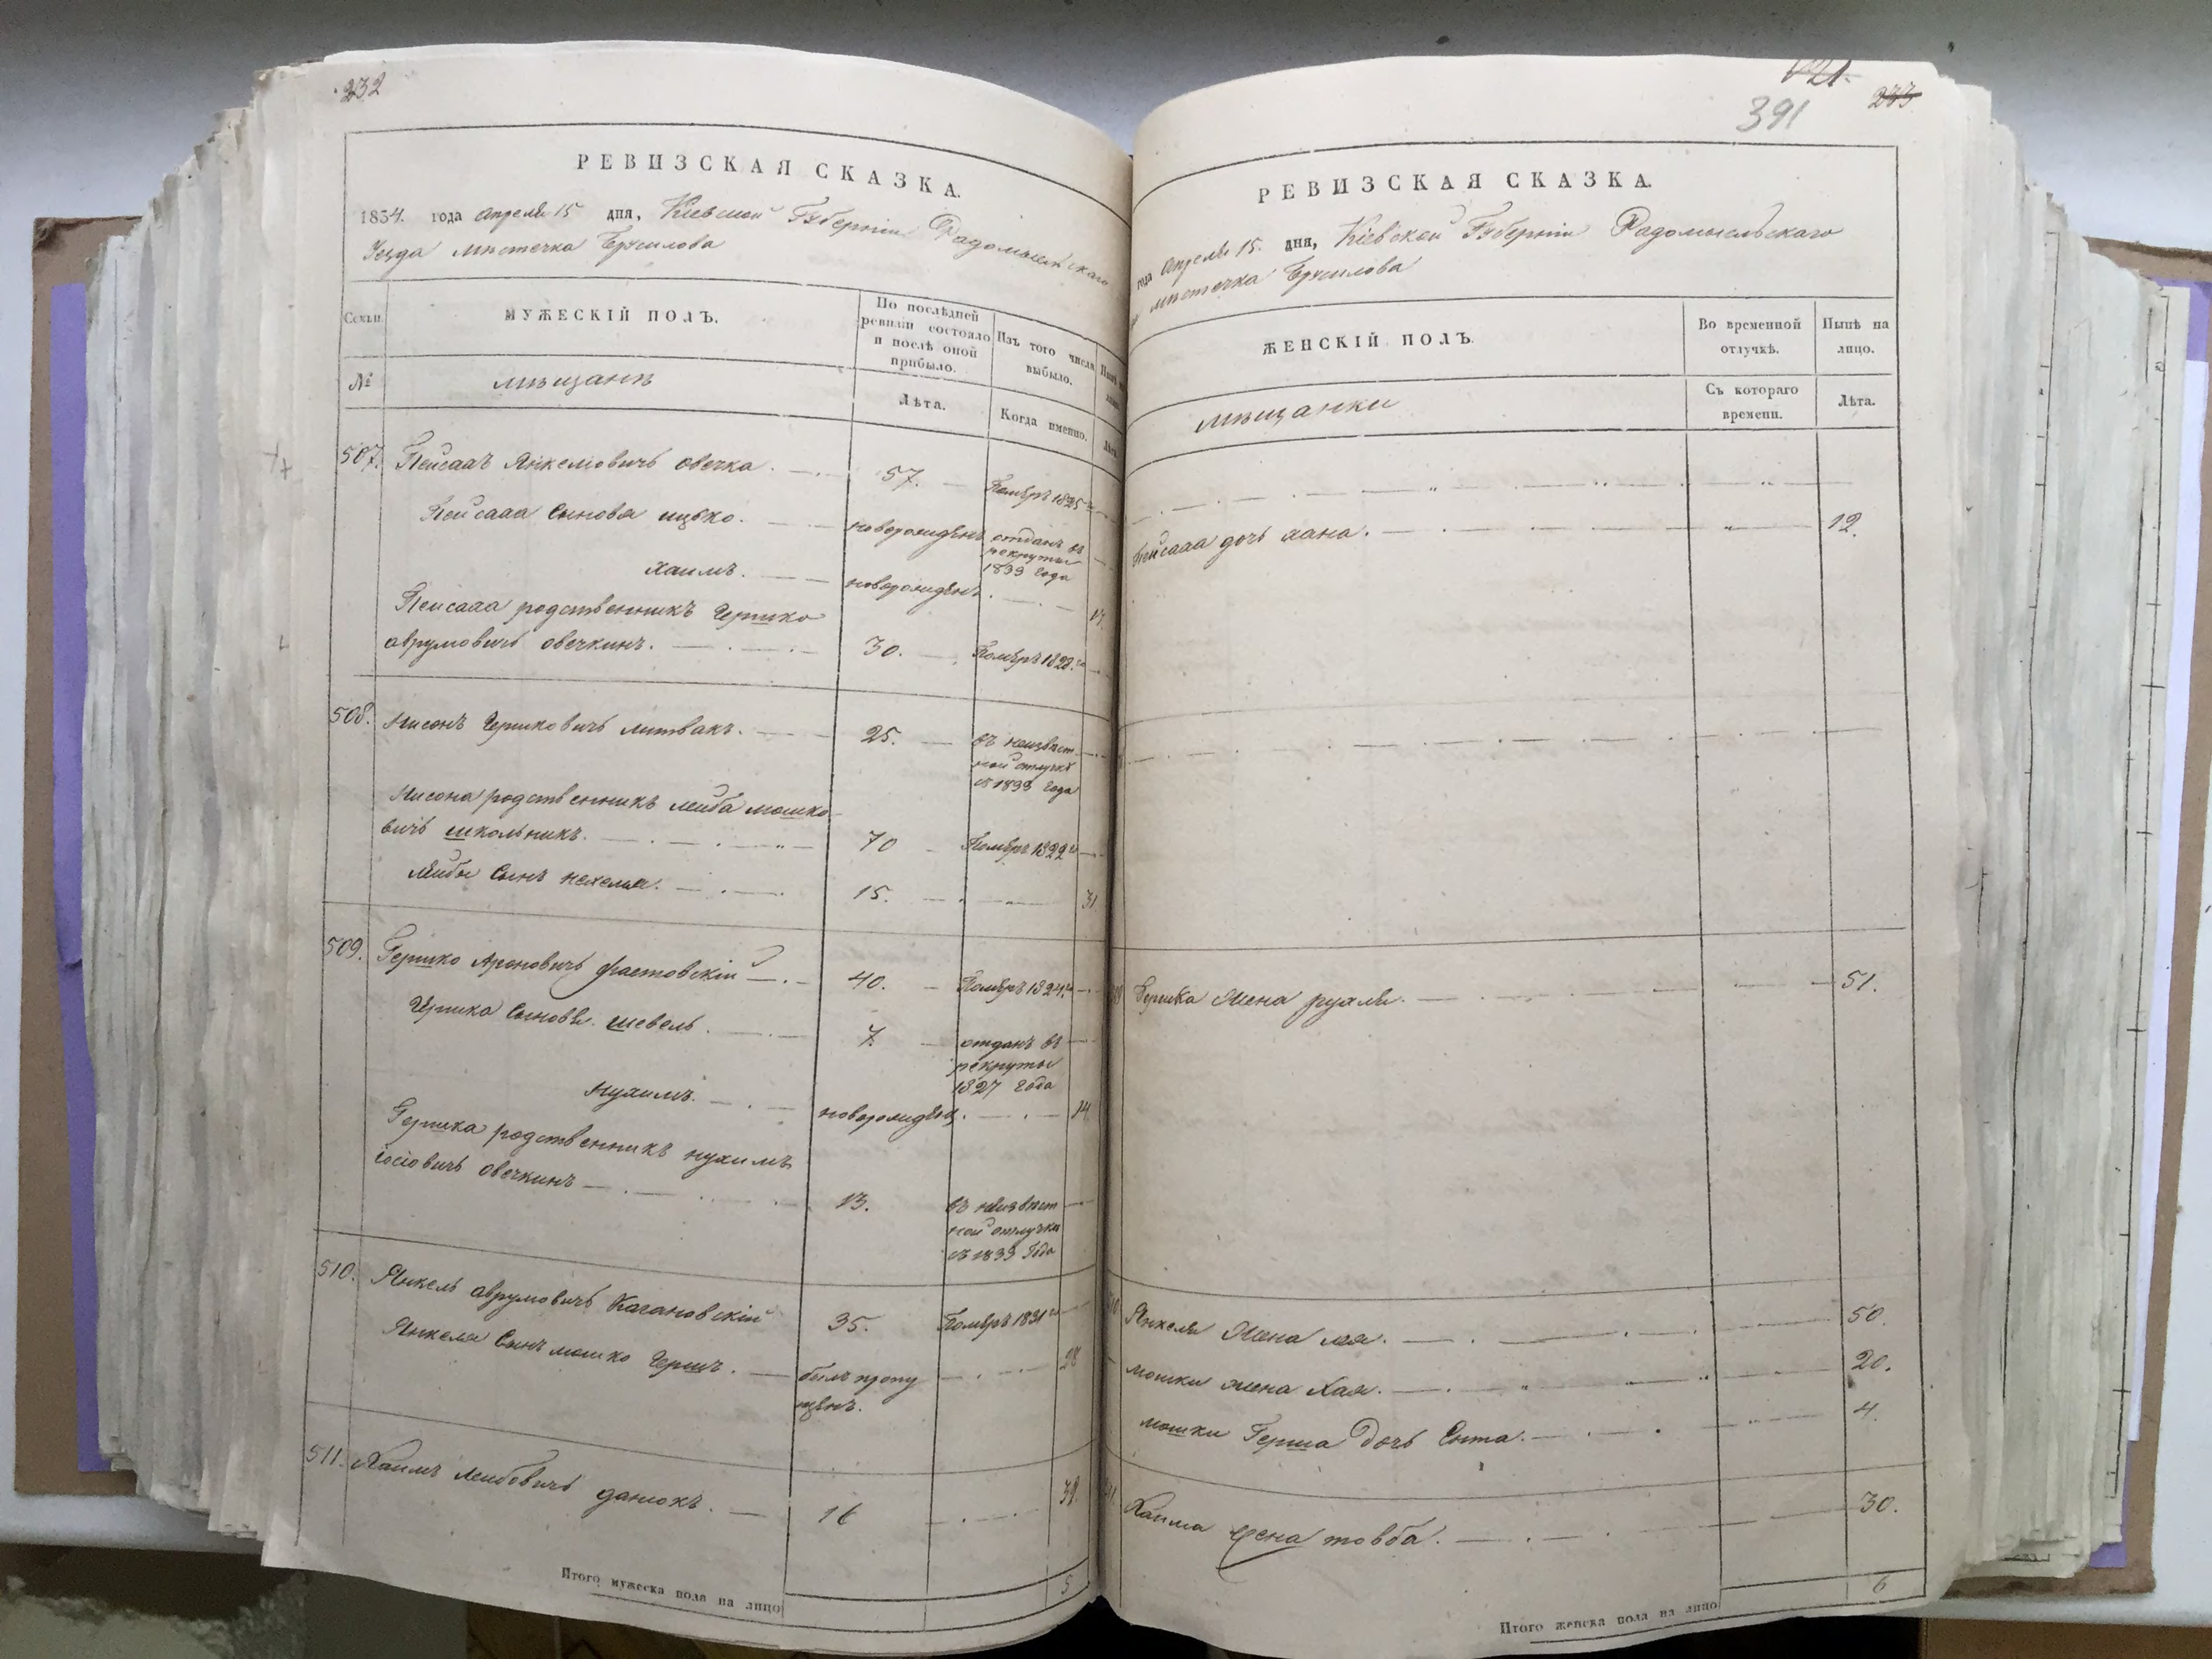 232
РЕВИЗСКАЯ СКАЗКА.
1834. года Апреля 15 дня, Кіевской Губерніи Радомысльскаго
Уезда мѣстечка Брусилова
Семьи. МУЖЕСКІЙ ПОЛЪ. По послѣдней ревизіи состояло и послѣ оной прибыло. Изъ того числа выбыло.
№ мѣщанѣ Лѣта. Когда именно. Лѣта.
507. Пейсахъ Янкелювичъ овечка. 57. Помѣръ 1825
Пейсаха Сыновя ицько. новорожденъ отданъ въ рекруты 1833 года
хаимъ. новорожденъ.
Пейсаха родственникъ Гершко
аврумовичъ овечкинъ. 30. Помѣръ 1828.
508. Нисонъ Гершковичъ литвакъ. 25. въ неизвѣстной отлучкѣ съ 1833 года
Нисона родственникъ лейба мошко
вичъ школьникъ. 70 Помѣръ 1822
Лейбы Сынъ нехемя. 15. 31
509. Гершко Ароновичъ фастовскій 40. Помѣръ 1824.
Гершка Сыновя. шевель. 7. отданъ въ рекруты 1827 года
Нухимъ. новорожденъ. 14
Гершка родственникъ нухимъ
іосіовичъ овечкинъ 13. въ неизвѣстной отлучки съ 1833 года
510. Янкель аврумовичъ Кагановскій 35. Помѣръ 1831
Янкеля Сынъ мошко Гершъ. былъ пропу 28
щенъ.
511. Хаимъ Лейбовичъ данюкъ. 16 32.
Итого мужеска пола на лицо 5
391
233
РЕВИЗСКАЯ СКАЗКА.
года Апреля 15. дня, Кіевской Губерніи Радомысльскаго
мѣстечка Брусилова
ЖЕНСКІЙ ПОЛЪ. Во временной отлучкѣ. Нынѣ на лицо.
мѣщанки Съ котораго времени. Лѣта.
Пейсаха дочь хана. 12.
Гершка жена рухля. 51.
Янкеля жена лея. 50.
мошки жена Хая. 20.
мошки Герша дочь Сыта. 4.
Хаима жена товба. 30.
Итого женска пола на лицо 6